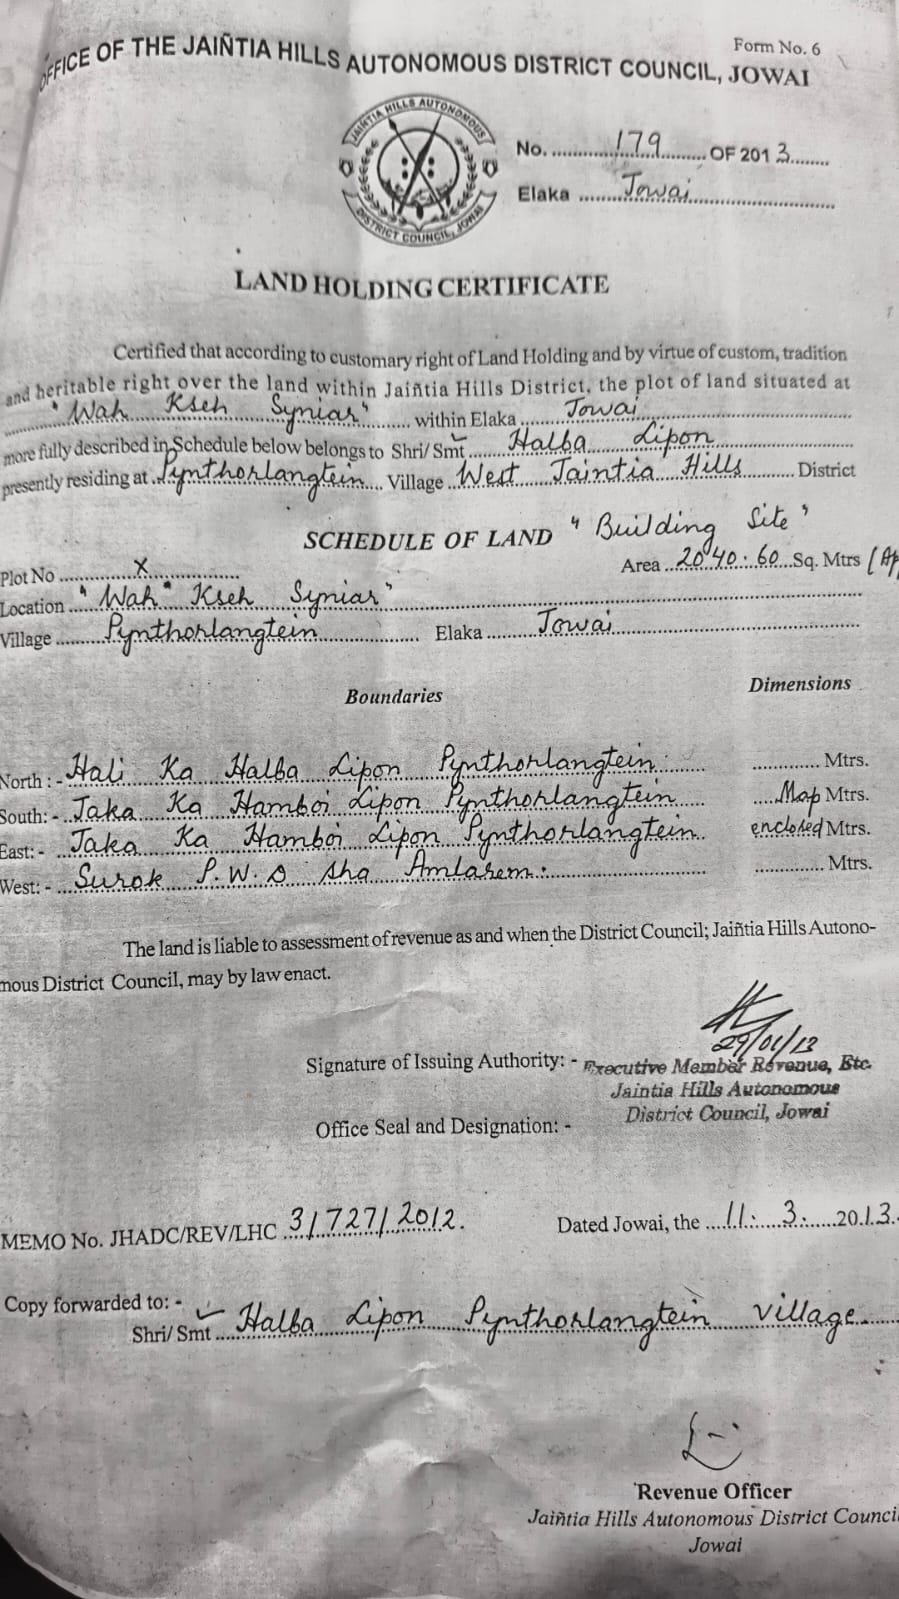 Form No. 6
OFFICE OF THE JAIÑTIA HILLS AUTONOMOUS DISTRICT COUNCIL, JOWAI
JAIÑTIA HILLS AUTONOMOUS
DISTRICT COUNCIL, JOWAI
No. 179 OF 2013
Elaka Jowai
LAND HOLDING CERTIFICATE
Certified that according to customary right of Land Holding and by virtue of custom, tradition
and heritable right over the land within Jaiñtia Hills District, the plot of land situated at
"Wah Kseh Syniar" within Elaka Jowai
more fully described in Schedule below belongs to Shri/ Smt Halba Lipon
presently residing at Pynthorlangtein Village West Jaintia Hills District
SCHEDULE OF LAND "Building Site"
Plot No X Area 2040.60 Sq. Mtrs (Ap
Location "Wah" Kseh Syniar"
Village Pynthorlangtein Elaka Jowai
Boundaries Dimensions
North : - Hali Ka Halba Lipon Pynthorlangtein Mtrs.
South: - Jaka Ka Hamboi Lipon Pynthorlangtein Map Mtrs.
East: - Jaka Ka Hamboi Lipon Pynthorlangtein enclosed Mtrs.
West: - Surok P.W.D sha Amlarem. Mtrs.
The land is liable to assessment of revenue as and when the District Council; Jaiñtia Hills Autono-
mous District Council, may by law enact.
29/01/13
Signature of Issuing Authority: - Executive Member Revenue, Etc.
Jaintia Hills Autonomous
District Council, Jowai
Office Seal and Designation: -
MEMO No. JHADC/REV/LHC 31/727/2012. Dated Jowai, the 11. 3. 2013.
Copy forwarded to: -
Shri/ Smt Halba Lipon Pynthorlangtein village
Revenue Officer
Jaiñtia Hills Autonomous District Counci
Jowai